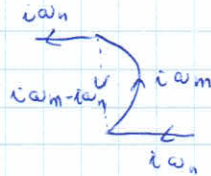 iωn
iωm-iωn
iωm
iωn